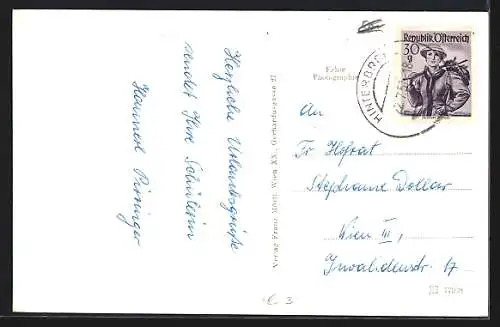 Herzliche Urlaubsgrüße
sendet Ihre Schülerin
Hannerl
Echte
Photographie
Verlag Franz Mörtl, Wien XX., Gerhardusgasse 27
Republik Österreich
30 g
HINTERBR
An
Fr Hofrat
Stephanie Dollar
Wien III,
Invalidenstr. 17
€ 3